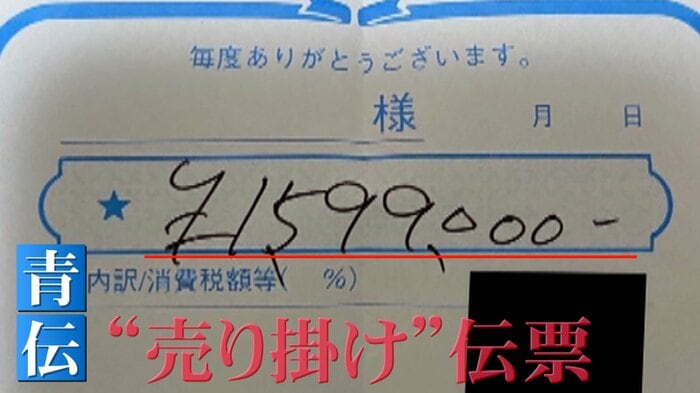 毎度ありがとうございます。
様 月 日
★ ¥1,599,000-
内訳/消費税額等( %)
青伝
“売り掛け”伝票